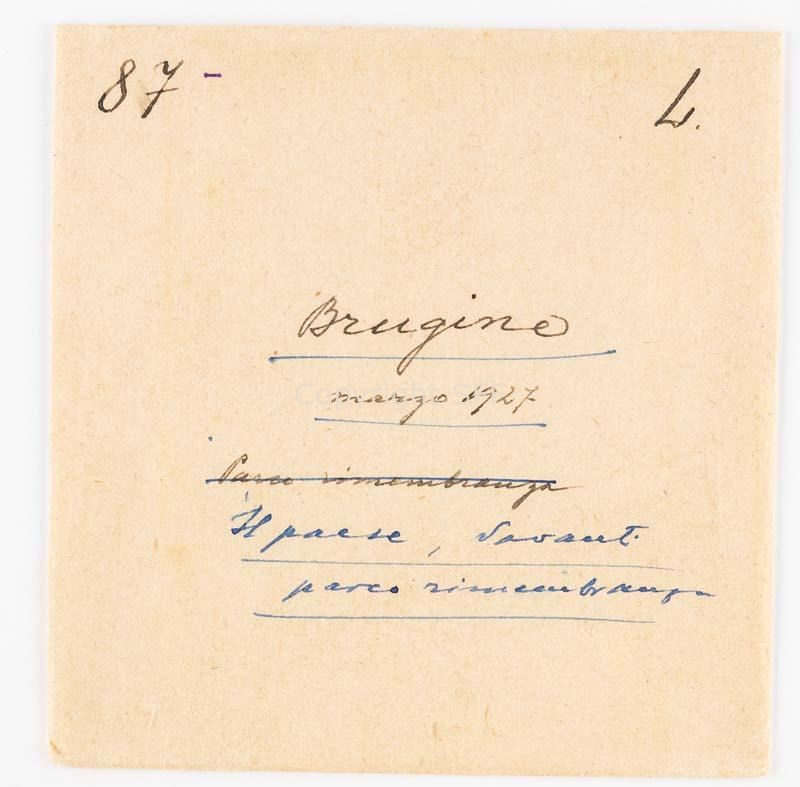 87 - L.
Brugine
marzo 1927
Parco rimembranza
Il paese, davanti
parco rimembranza